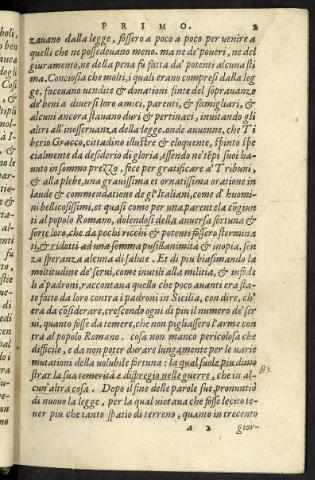 PRIMO. 2
zauano dalla legge, fossero a poco a poco per uenire a
quelli che ne possedeuano meno. ma ne de' poueri, ne del
giuramento, ne della pena fu fatta da' potenti alcuna sti
ma. Conciosia che molti, i quali erano compresi dalla leg
ge, faceuano uendite & donationi finte del soprauanzo
de' beni a diuersi loro amici, parenti, & famigliari, &
alcuni ancora stauano duri & pertinaci, inuitando gli
altri all'inosseruanza della legge. onde auuenne, che Ti
berio Gracco, cittadino illustre & eloquente, spinto spe
cialmente da desiderio di gloria, essendo ne' tēpi suoi ha-
uuto in sommo prezzo, fece per gratificare a' Tribuni,
& alla plebe, una grauissima et ornatissima oratione in
laude & commendatione de gl'Italiani, come d'huomi-
ni bellicosissimi, et quasi come per una parentela cōgiun
ti al popolo Romano, dolendosi della auuersa fortuna &
sorte loro, che da pochi ricchi & potenti fossero stermina
ti, & ridotti ad una somma pusillanimità & inopia, sen
za speranza alcuna di salute. Et di piu biasimando la
moltitudine de' serui, come inutili alla militia, & infede
li a' padroni, raccontaua quello che poco auanti era sta-
to fatto da loro contra i padroni in Sicilia, con dire, ch'
era da cōsiderare, crescendo ogni dì piu il numero de' ser
ui, quanto fosse da temere, che non pigliassero l'arme con
tra al popolo Romano. cosa non manco pericolosa che
difficile, e da non poter durare lungamente per le uarie
mutationi della uolubile fortuna: la qual suole piu dimo
strar la sua temerità e dispregio nelle guerre, che in al-
cun'altra cosa. Dopo il fine delle parole sue pronuntiò
di nuouo la legge, per la qual uietaua che fosse lecito te-
ner piu che tanto spatio di terreno, quanto in trecento
a 2 gior-